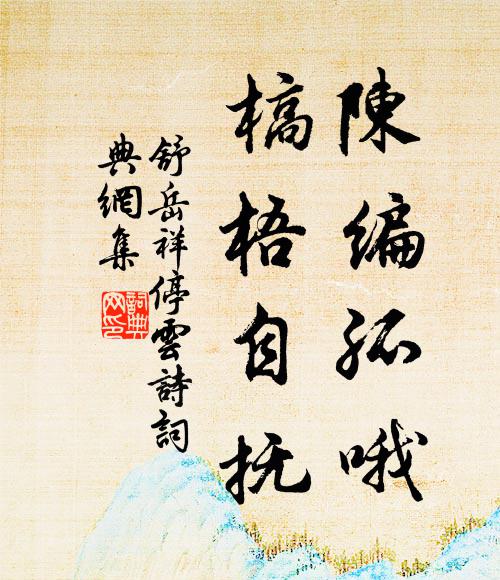 陳編孤哦
槁梧自抚
舒岳祥停雲詩詞
典網集
詞典
网印